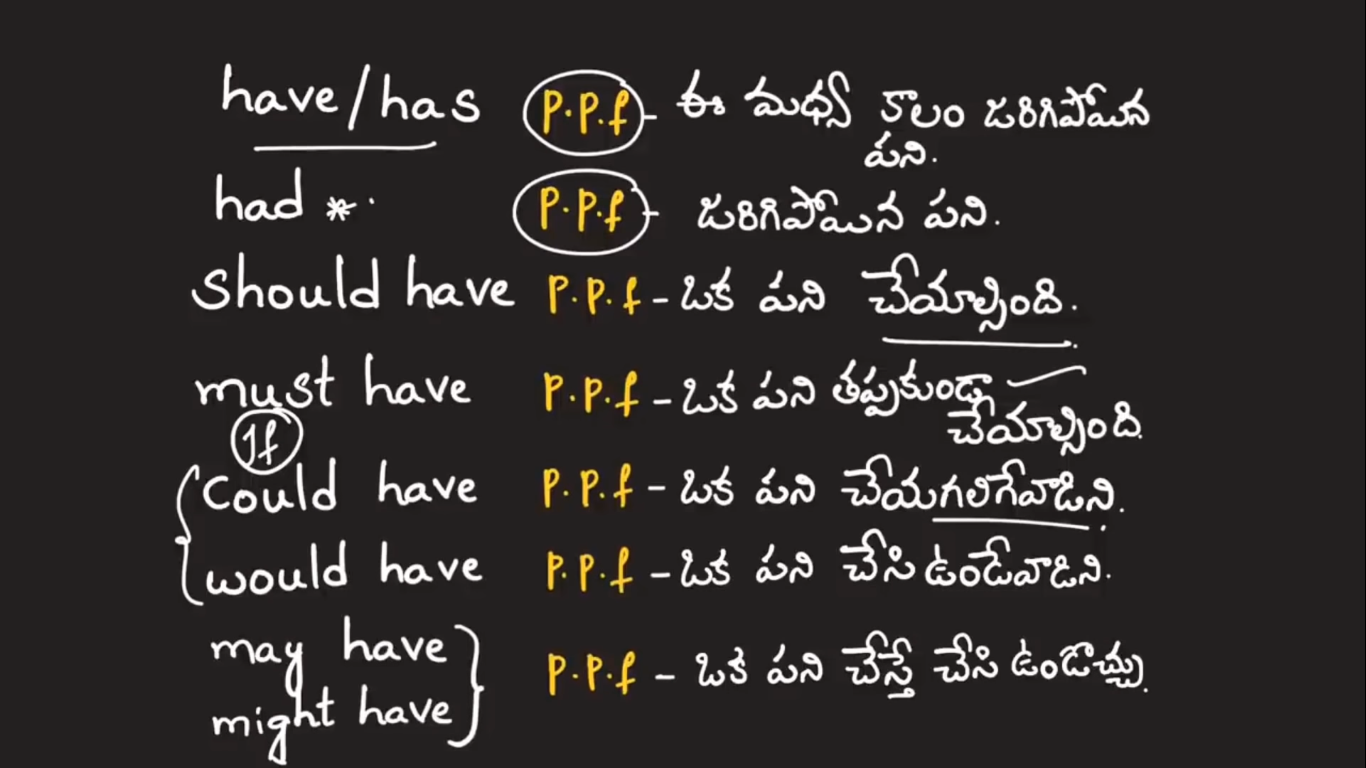 have/has P.P.f - ఈ మధ్య కాలం జరిగిపోయిన
పని.
had * P.P.f - జరిగిపోయిన పని.
should have P.P.f - ఒక పని చేయాల్సింది.
must have P.P.f - ఒక పని తప్పకుండా
చేయాల్సింది.
If
could have P.P.f - ఒక పని చేయగలిగేవాడిని.
would have P.P.f - ఒక పని చేసి ఉండేవాడిని.
may have
P.P.f - ఒక పని చేస్తే చేసి ఉండొచ్చు.
might have